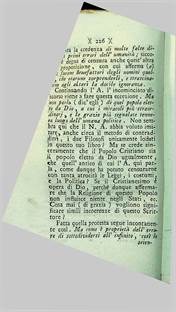 )( 226 )(
la credenza di molte false di-
primi errori dell' umanità; ticco-
degna di censura anche quest' altra
proposizione, con cui afferma
essere Benefattori degli uomini quel-
che osarono sorprenderli, e strascinar-
agli altari la docile ignoranza.
Continuando l'A. l'incominciato di-
scorso viene a fare questa eccezione. Ma
non parlo (dic' egli) di quel popolo elet-
to da Dio, a cui i miracoli più straordi-
narj, e le grazie più segnalate tenne-
ro luogo dell' umana politica. Non sem-
bra qui che il N. A. abbia voluto imi-
tare, anche circa il metodo di contrad-
dirsi, i dei Filosofi umanissimi che ha
in questo tuo libro? Ma se crede since-
ramente che il Popolo Cristiano sia
il popolo eletto da Dio ugualmente,
che quell' antico di cui l'A. qui par-
la, come dunque ha potuto censurarne
con tanta atrocità le Leggi, i costumi,
e la Politica? Se il Cristianesimo è
opera di Dio, perchè dunque afferma-
re che la Religione di questo Popolo
non influisce niente negli Stati, ec.
Cosa mai (di grazia) vogliono signifi-
care simili incoerenze di questo Scrit-
tore?
Fatta quella protesta segue incontanen-
te così. Ma come è proprietà dell' erro-
re di sottodividersi all' infinito, così le
scien-